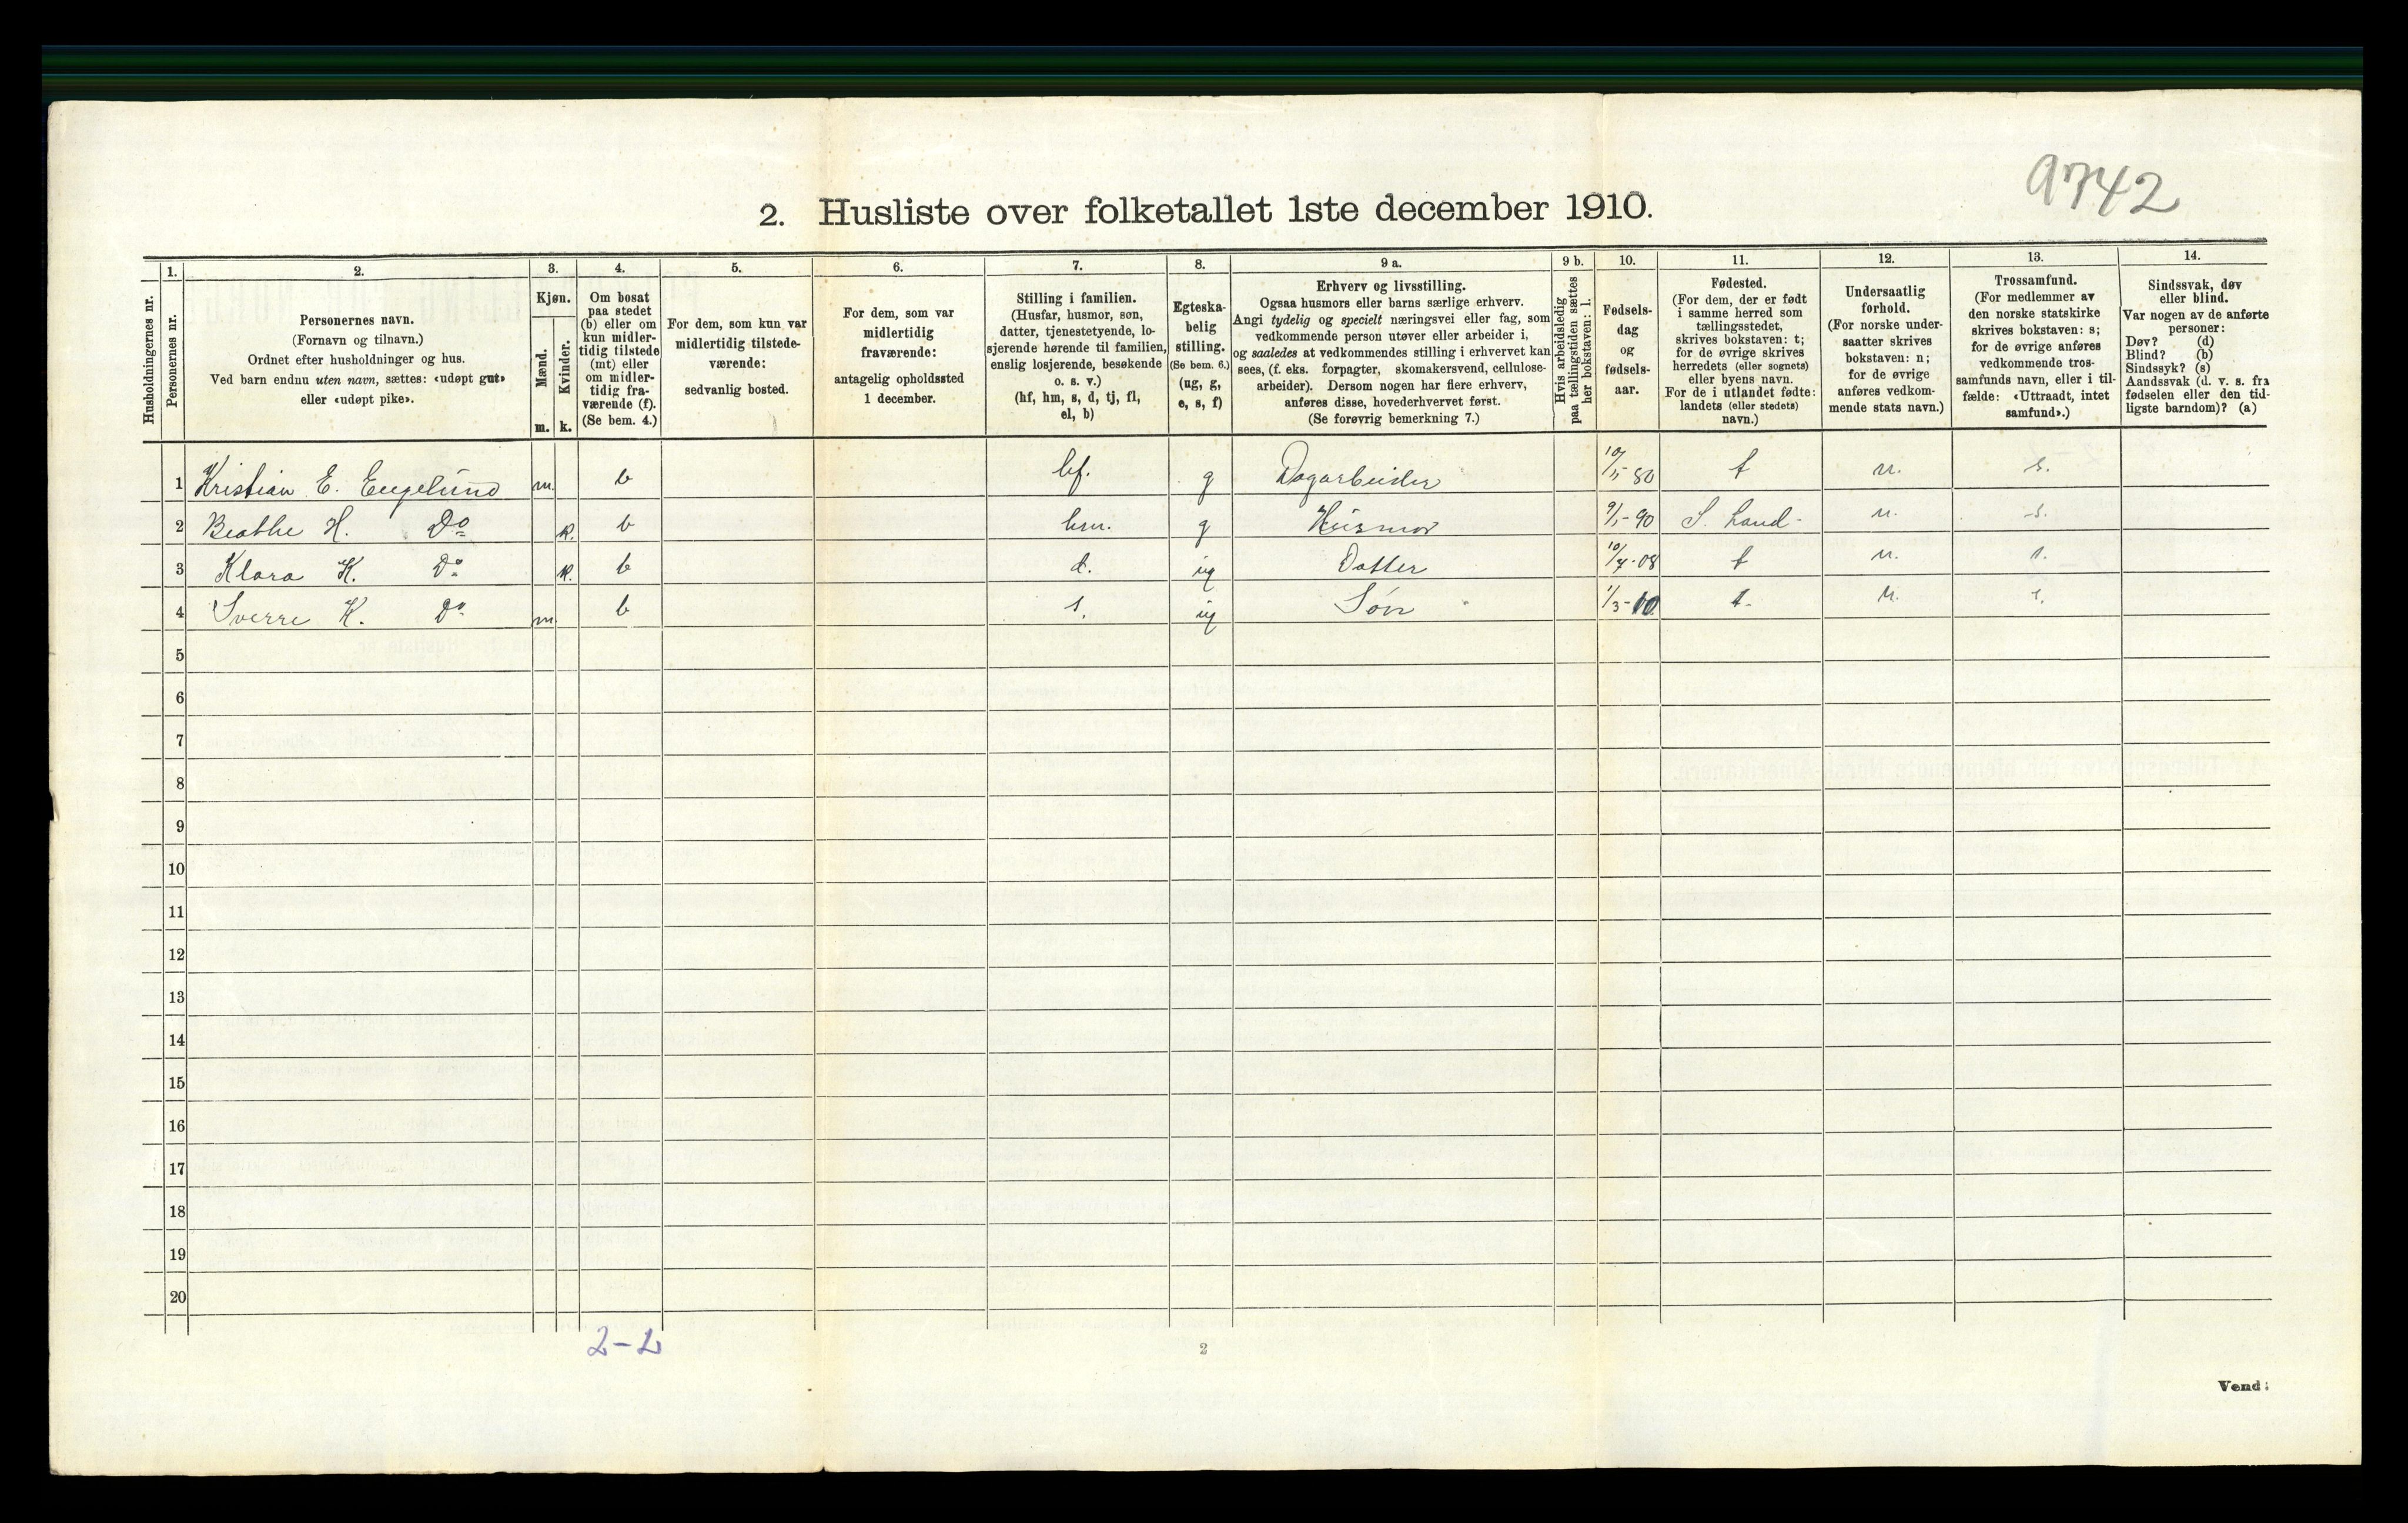 9742
2. Husliste over folketallet 1ste december 1910.
Husholdningernes nr.
1.
Personernes nr.
2.
Personernes navn.
(Fornavn og tilnavn.)
Ordnet efter husholdninger og hus.
Ved barn endnu uten navn, sættes: «udøpt gut»
eller «udøpt pike».
3.
Kjøn.
Mænd.
Kvinder.
m. k.
4.
Om bosat
paa stedet
(b) eller om
kun midler-
tidig tilstede
(mt) eller
om midler-
tidig fra-
værende (f).
(Se bem. 4.)
5.
For dem, som kun var
midlertidig tilstede-
værende:
sedvanlig bosted.
6.
For dem, som var
midlertidig
fraværende:
antagelig opholdssted
1 december.
7.
Stilling i familien.
(Husfar, husmor, søn,
datter, tjenestetyende, lo-
sjerende hørende til familien,
enslig losjerende, besøkende
o. s. v.)
(hf, hm, s, d, tj, fl,
el, b)
8.
Egteska-
belig
stilling.
(Se bem. 6.)
(ug, g,
e, s, f)
9 a.
Erhverv og livsstilling.
Ogsaa husmors eller barns særlige erhverv.
Angi tydelig og specielt næringsvei eller fag, som
vedkommende person utøver eller arbeider i,
og saaledes at vedkommendes stilling i erhvervet kan
sees, (f. eks. forpagter, skomakersvend, cellulose-
arbeider). Dersom nogen har flere erhverv,
anføres disse, hovederhvervet først.
(Se forøvrig bemerkning 7.)
9 b.
Hvis arbeidsledig
paa tællingstiden sættes
her bokstaven: l.
10.
Fødsels-
dag
og
fødsels-
aar.
11.
Fødested.
(For dem, der er født
i samme herred som
tællingsstedet,
skrives bokstaven: t;
for de øvrige skrives
herredets (eller sognets)
eller byens navn.
For de i utlandet fødte:
landets (eller stedets)
navn.)
12.
Undersaatlig
forhold.
(For norske under-
saatter skrives
bokstaven: n;
for de øvrige
anføres vedkom-
mende stats navn.)
13.
Trossamfund.
(For medlemmer av
den norske statskirke
skrives bokstaven: s;
for de øvrige anføres
vedkommende tros-
samfunds navn, eller i til-
fælde: «Uttraadt, intet
samfund».)
14.
Sindssvak, døv
eller blind.
Var nogen av de anførte
personer:
Døv? (d)
Blind? (b)
Sindssyk? (s)
Aandssvak (d. v. s. fra
fødselen eller den tid-
ligste barndom)? (a)
1 Kristian E. Engelund m. b hf. g Dagarbeider 80 t n. s.
2 Beathe H. Do k. b hm. g Husmor 9/1-90 S. Land- n. s.
3 Klara K. Do k. b d. ug Datter 10/7-08 t n. s.
4 Sverre K. Do m. b s. ug Søn 1/3-10 t. n. s.
5
6
7
8
9
10
11
12
13
14
15
16
17
18
19
20
2-2
2
Vend!